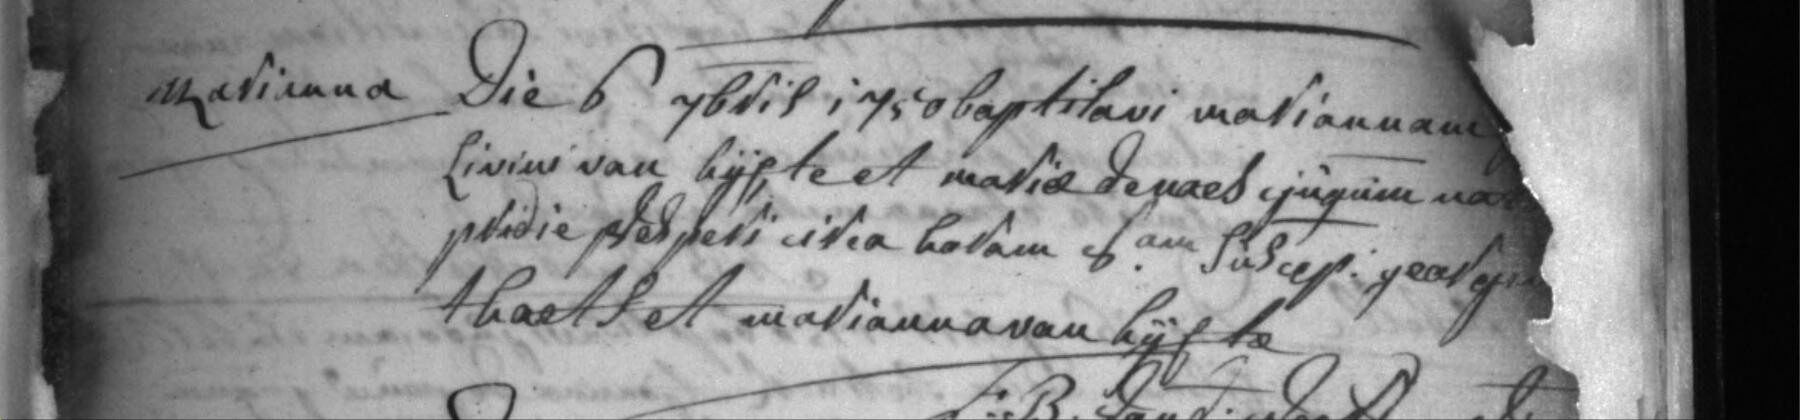 Marianna Die 6 7bris 1750 baptisavi mariannam
Livini van hijfte et mariæ de naes cjugum nat
pridie vesperi circa horam 6.am Suscep. georgi
thaets et marianna van hijfte
F. B.